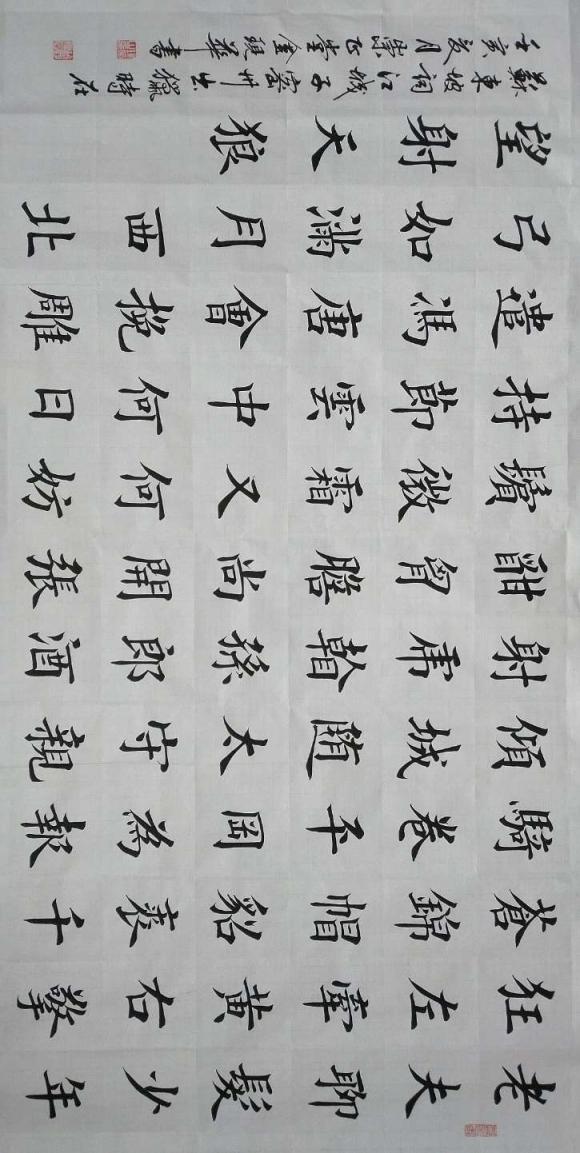 老夫聊髮少年
狂左牽黃右擎
蒼錦帽貂裘千
騎卷平岡為報
傾城隨太守親
射虎看孫郎酒
酣胸膽尚開張
鬢微霜又何妨
持節雲中何日
遣馮唐會挽雕
弓如滿月西北
望射天狼
蘇東坡詞江城子密州出獵時在
亥夏月崇正堂金現華書